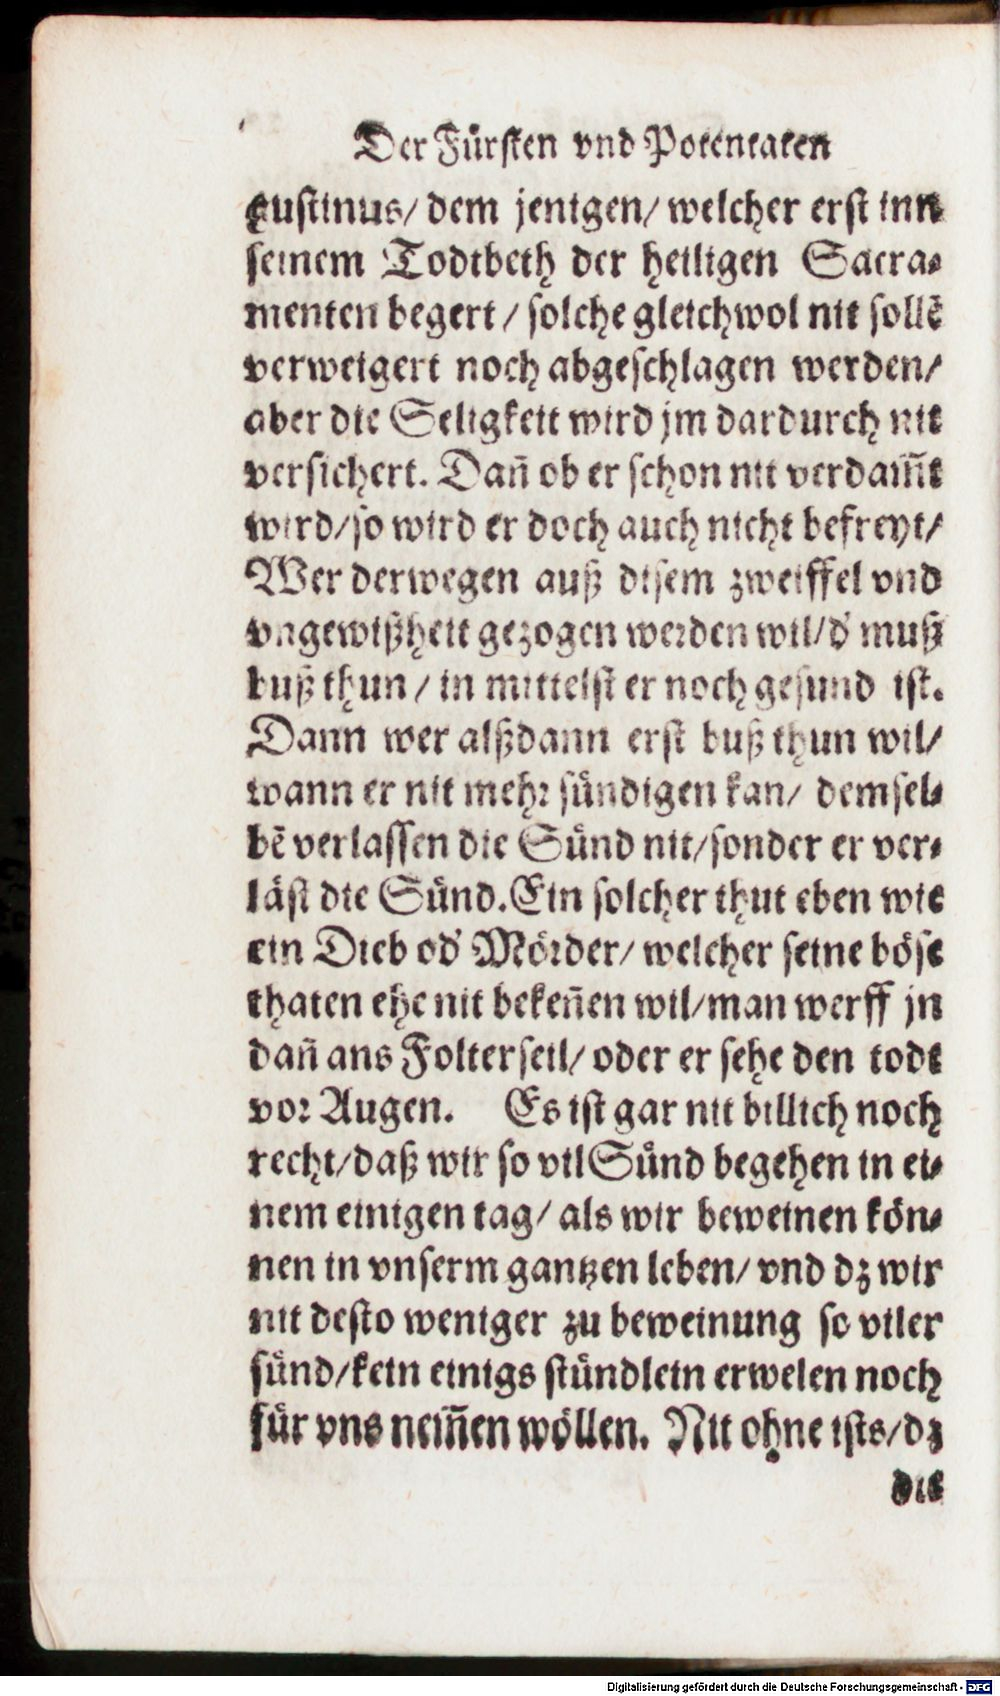 Der Fürsten vnd Potentaten
gustinus/ dem jenigen/ welcher erst inn
seinem Todtbeth der heiligen Sacra-
menten begert / solche gleichwol nit sollē
verweigert noch abgeschlagen werden/
aber die Seligkeit wird jm dardurch nit
versichert. Dañ ob er schon nit verdam̃t
wird/so wird er doch auch nicht befreyt/
Wer derwegen auß disem zweiffel vnd
vngewißheit gezogen werden wil/d' muß
buß thun / in mittelst er noch gesund ist.
Dann wer alßdann erst buß thun wil/
wann er nit mehr sündigen kan/ demsel-
bē verlassen die Sünd nit/sonder er ver-
läst die Sünd. Ein solcher thut eben wie
ein Dieb od' Mörder/ welcher seine böse
thaten ehe nit bekeñen wil/man werff jn
dañ ans Folterseil/ oder er sehe den todt
vor Augen. Es ist gar nit billich noch
recht/daß wir so vil Sünd begehen in ei-
nem einigen tag/ als wir beweinen kön-
nen in vnserm gantzen leben/ vnd dz wir
nit desto weniger zu beweinung so viler
sünd/kein einigs stündlein erwelen noch
für vns nem̃en wöllen. Nit ohne ists/dz
die
Digitalisierung gefördert durch die Deutsche Forschungsgemeinschaft - DFG